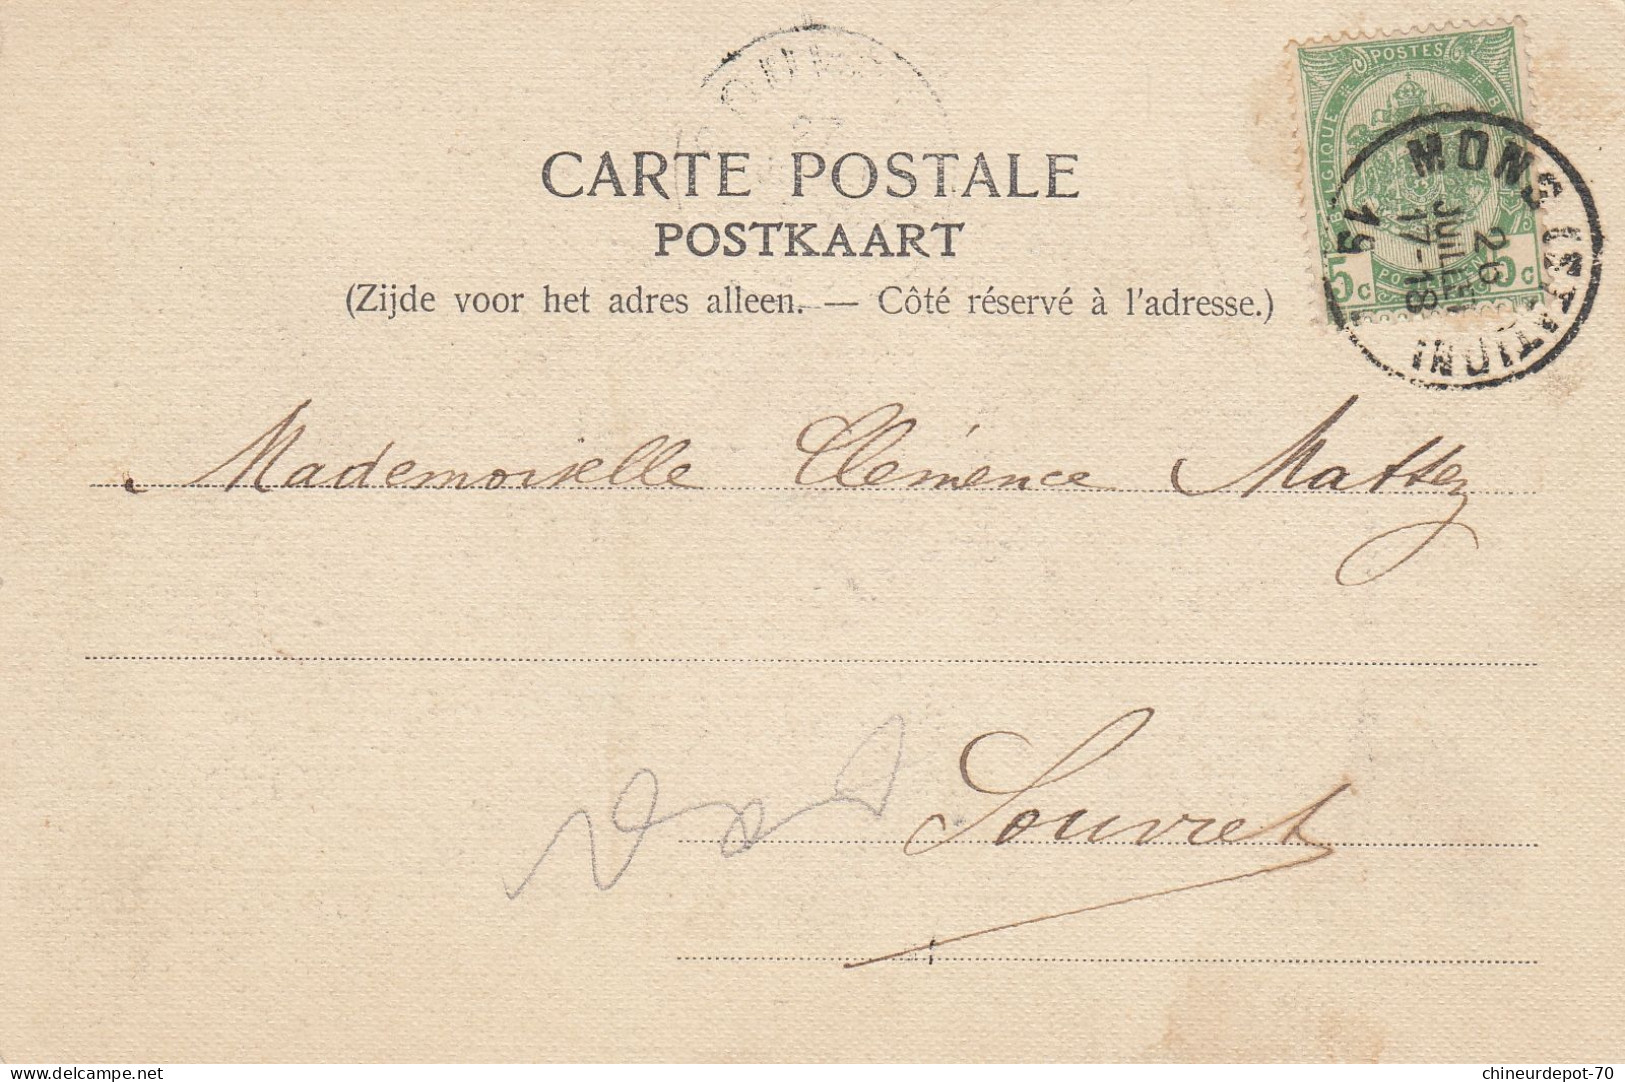 POSTES
BELGIQUE
5 c 5 c
MONS (STATION)
26
JUILLET
17-18
19
27
CARTE POSTALE
POSTKAART
(Zijde voor het adres alleen. — Côté réservé à l'adresse.)
Mademoiselle Clémence Mattez
Souvret
chineurdepot-70